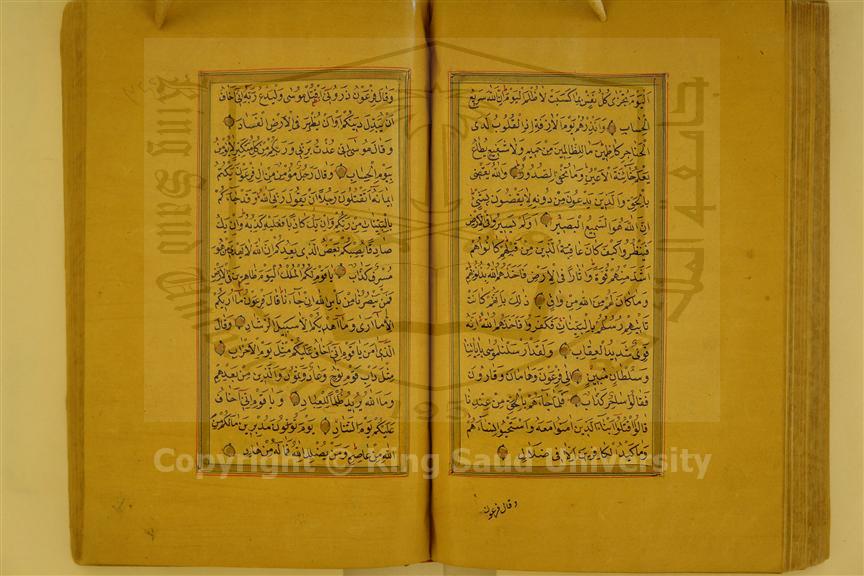 اليوم تجزى كل نفس بما كسبت لا ظلم اليوم ان الله سريع
الحساب وانذرهم يوم الازفة اذ القلوب لدى
الحناجر كاظمين ما للظالمين من حميم ولا شفيع يطاع
يعلم خائنة الاعين وما تخفى الصدور والله يقضى
بالحق والذين يدعون من دونه لا يقضون بشئ
ان الله هو السميع البصير اولم يسيروا فى الارض
فينظروا كيف كان عاقبة الذين من قبلهم كانوا هم
اشد منهم قوة واثارا فى الارض فاخذهم الله بذنوبهم
وما كان لهم من الله من واق ذلك بانهم كانت
تاتيهم رسلهم بالبينات فكفروا فاخذهم الله انه
قوى شديد العقاب ولقد ارسلنا موسى باياتنا
وسلطان مبين الى فرعون وهامان وقارون
فقالوا ساحر كذاب فلما جاءهم بالحق من عندنا
قالوا اقتلوا ابناء الذين امنوا معه واستحيوا نساءهم
وما كيد الكافرين الا فى ضلال
وقال فرعون
وقال فرعون ذرونى اقتل موسى وليدع ربه انى اخاف
ان يبدل دينكم او ان يظهر فى الارض الفساد
وقال موسى انى عذت بربى وربكم من كل متكبر لا يؤمن
بيوم الحساب وقال رجل مؤمن من ال فرعون يكتم
ايمانه اتقتلون رجلا ان يقول ربى الله وقد جاءكم
بالبينات من ربكم وان يك كاذبا فعليه كذبه وان يك
صادقا يصبكم بعض الذى يعدكم ان الله لا يهدى من هو
مسرف كذاب يا قوم لكم الملك اليوم ظاهرين فى الارض
فمن ينصرنا من باس الله ان جاءنا قال فرعون ما اريكم
الا ما ارى وما اهديكم الا سبيل الرشاد وقال
الذى امن يا قوم انى اخاف عليكم مثل يوم الاحزاب
مثل داب قوم نوح وعاد وثمود والذين من بعدهم
وما الله يريد ظلما للعباد ويا قوم انى اخاف
عليكم يوم التناد يوم تولون مدبرين ما لكم من
الله من عاصم ومن يضلل الله فما له من هاد
جامعة الملك سعود
King Saud University
1957
Copyright © King Saud University